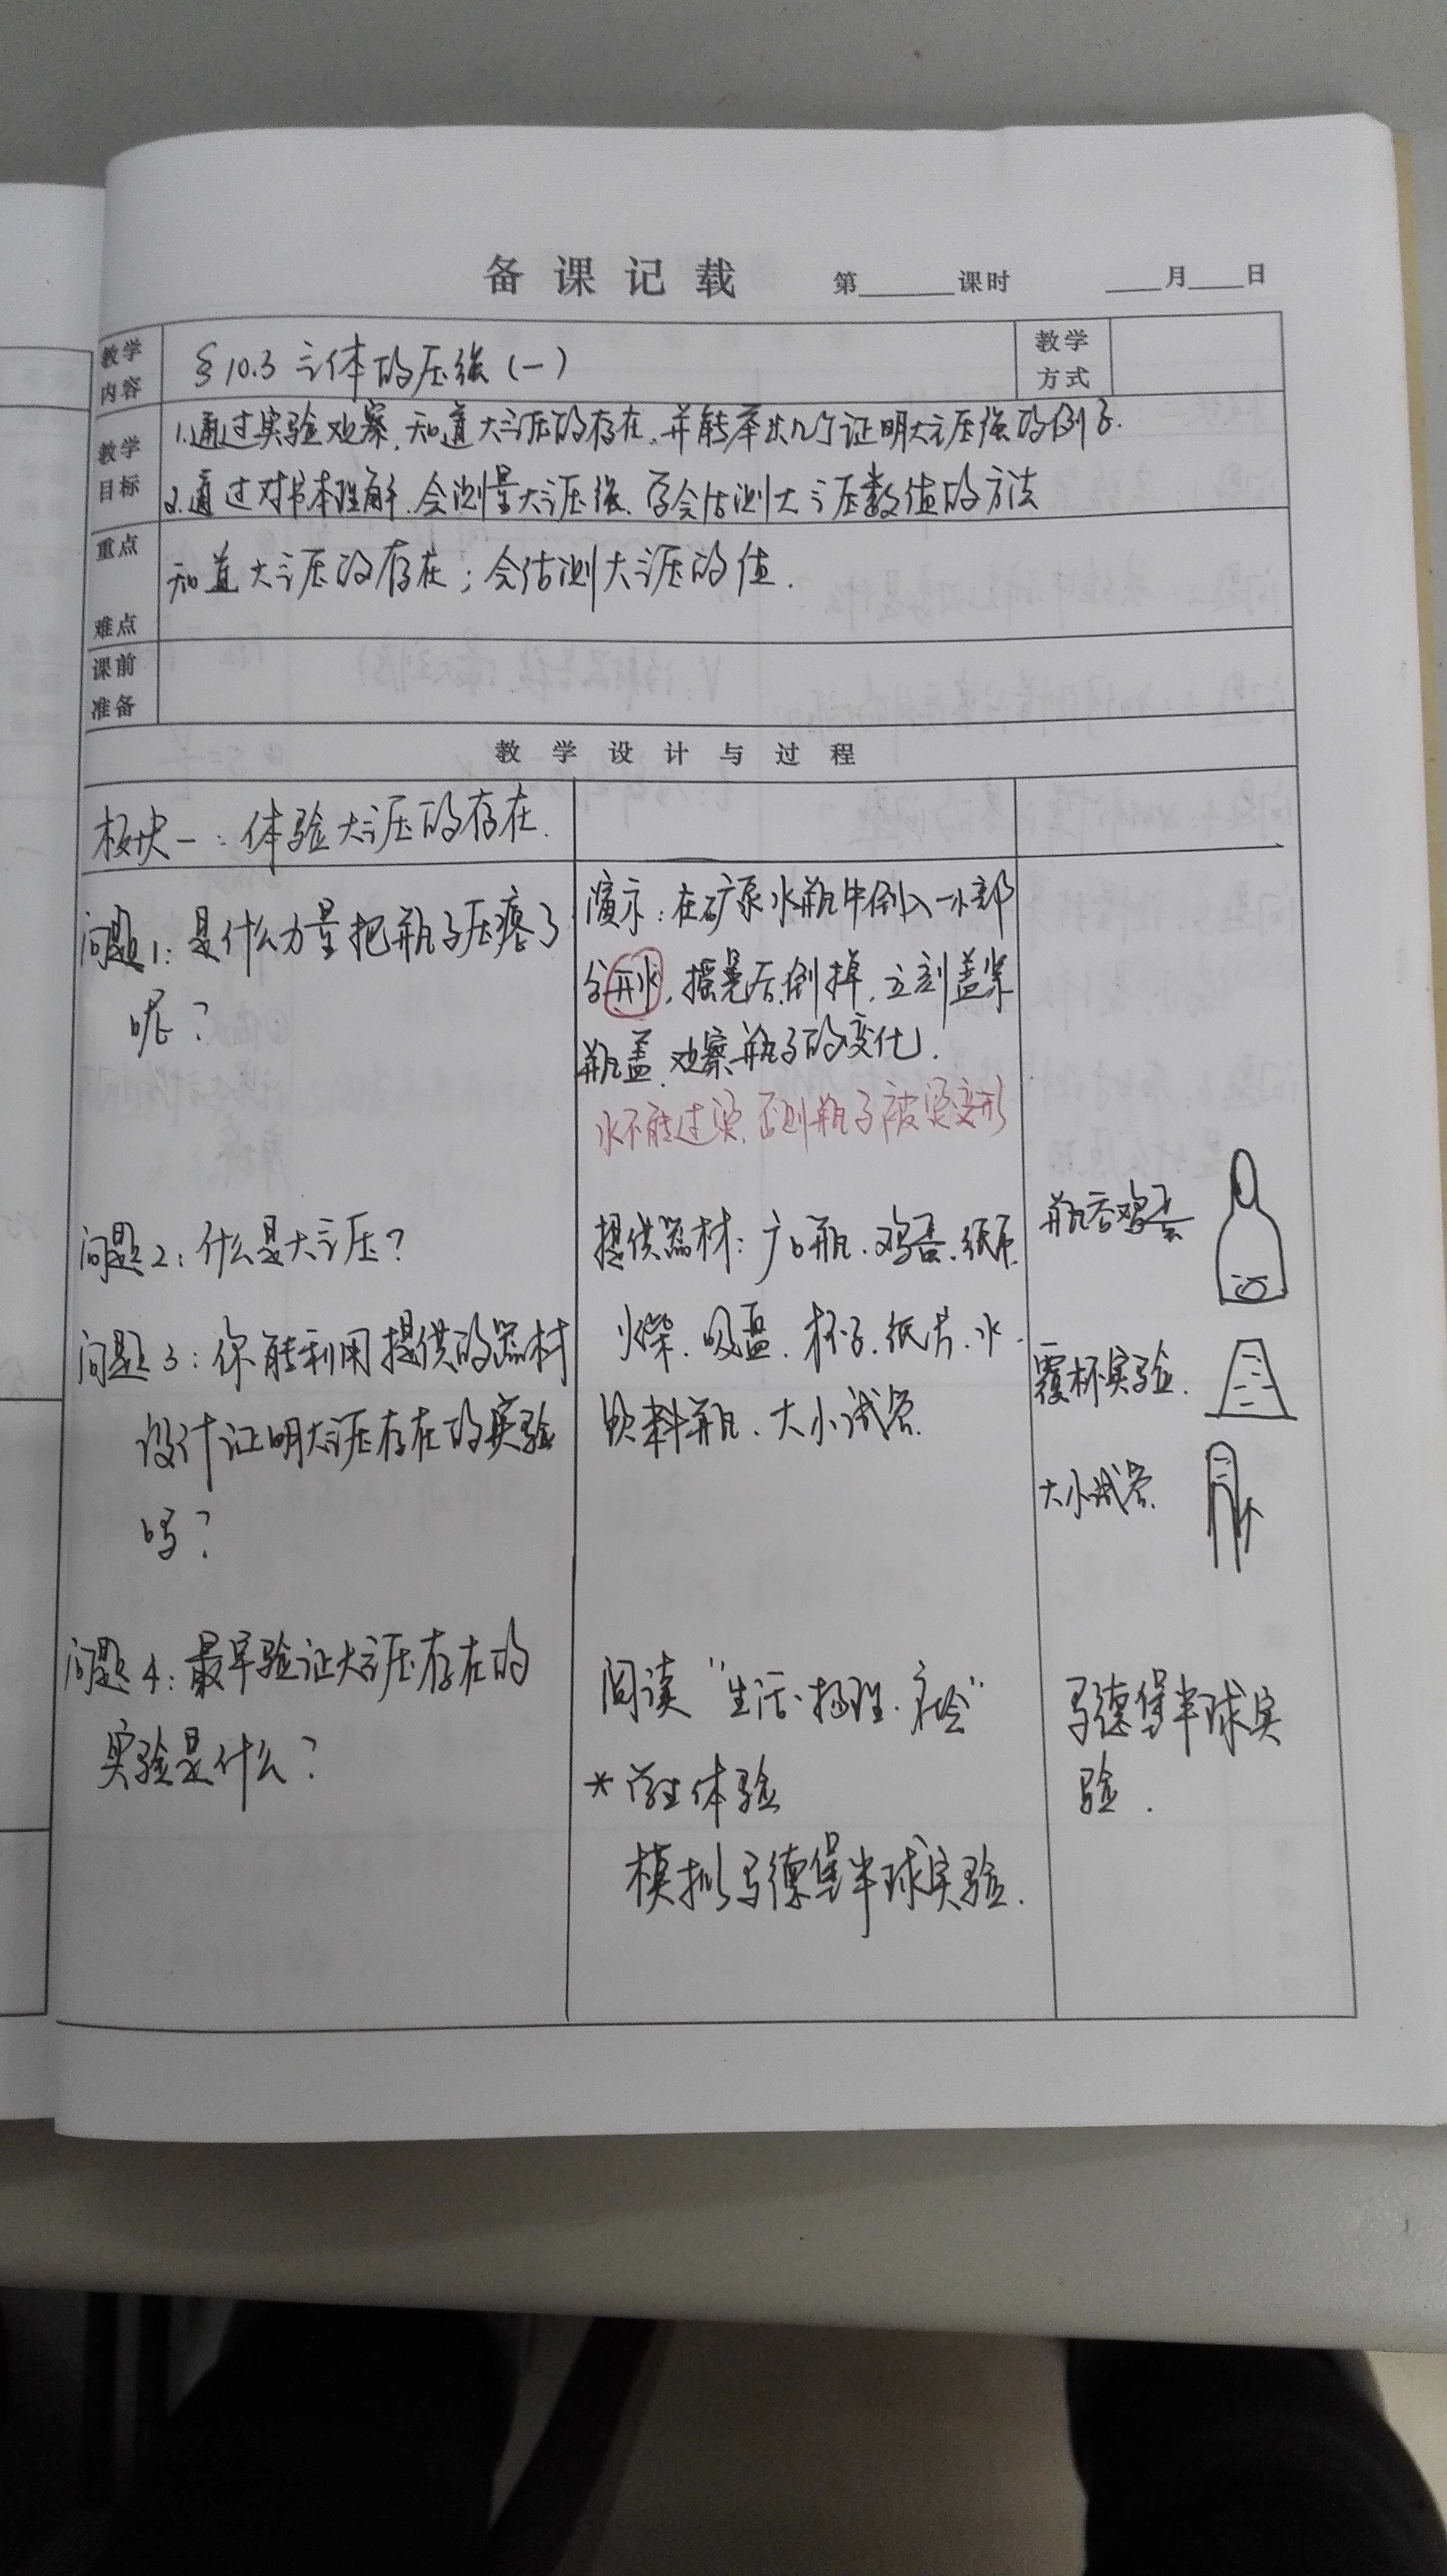 备课记载 第____课时 ____月____日
教学内容 §10.3 气体的压强(一) 教学方式
教学目标 1.通过实验观察,知道大气压的存在,并能举出几个证明大气压强的例子.
2.通过对书本理解,会测量大气压强,学会估测大气压数值的方法
重点 知道大气压的存在;会估测大气压的值.
难点
课前准备
教学设计与过程
板块一:体验大气压的存在.
问题1:是什么力量把瓶子压瘪了
呢?
演示:在矿泉水瓶中倒入一小部
分开水,摇晃后,倒掉,立刻盖紧
瓶盖,观察瓶子的变化.
水不能过烫,否则瓶子被烫变形
问题2:什么是大气压?
问题3:你能利用提供的器材
设计证明大气压存在的实验
吗?
提供器材:广口瓶、鸡蛋、纸片、
火柴、吸盘、杯子、纸片、水、
饮料瓶、大小试管.
瓶吞鸡蛋
覆杯实验.
大小试管.
问题4:最早验证大气压存在的
实验是什么?
阅读“生活·物理·社会”
*学生体验
模拟马德堡半球实验.
马德堡半球实
验.